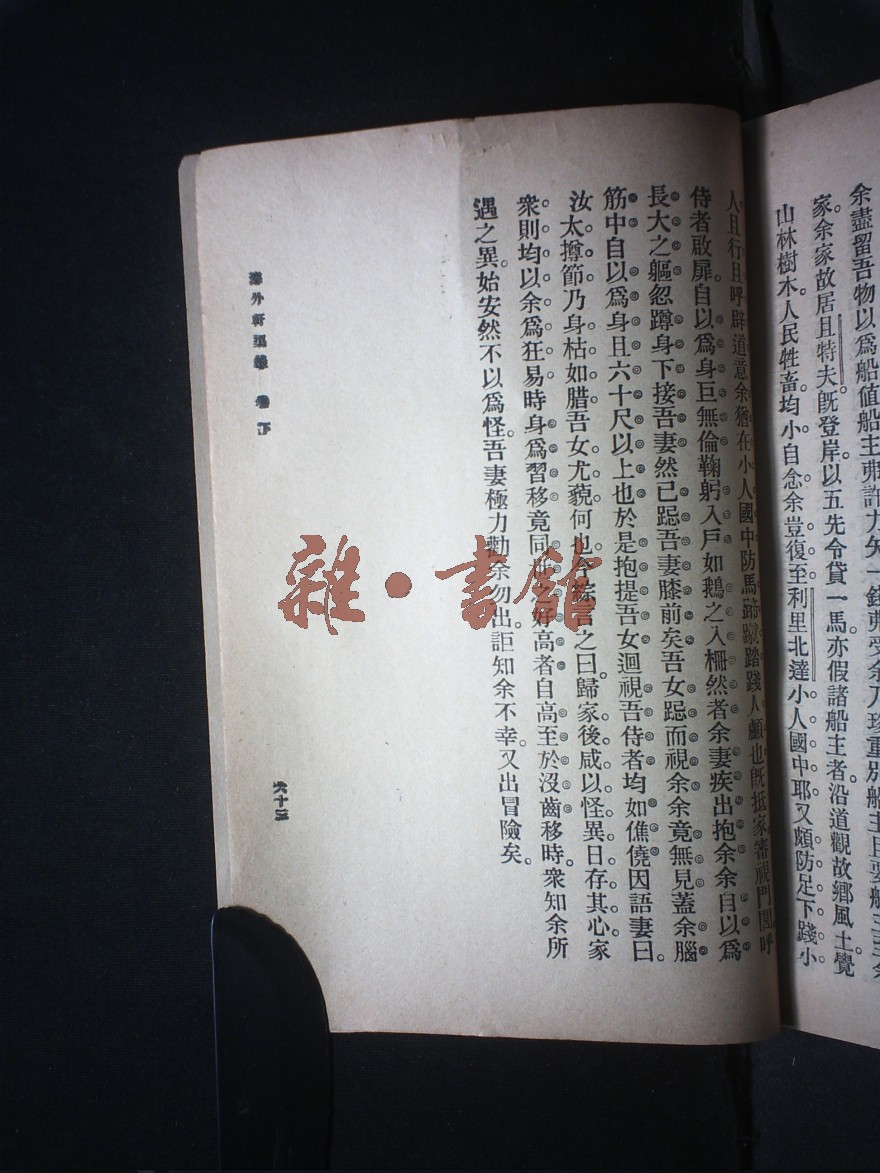 余盡留吾物以爲船值船主弗許力矢一錢弗受余乃珍重別船主且要船主至余
家。余家故居且特夫。旣登岸。以五先令貸一馬。亦假諸船主者。沿道觀故鄉風土。覺
山林樹木。人民牲畜。均小。自念余豈復至利里北達小人國中耶。又頗防足下踐小
人。且行且呼辟道。意余猶在小人國中。防馬蹄蹴踏踐人顱也。旣抵家。審視門閭。呼
侍者啟扉。自以爲身巨無倫。鞠躬入戶。如鵝之入柵然者。余妻疾出抱余。余自以爲
長大之軀。忽蹲身下接吾妻。然已跽吾妻膝前矣。吾女跽而視余。余竟無見。蓋余腦
筋中自以爲身且六十尺以上也。於是抱提吾女。迴視吾侍者。均如僬僥。因語妻曰。
汝太撙節。乃身枯如腊。吾女尤藐。何也。今綜言之曰。歸家後咸以怪異日存其心。家
衆則均以余爲狂易。時身爲習移。竟同世之好高者自高至於沒齒。移時。衆知余所
遇之異。始安然不以爲怪。吾妻極力勸余勿出。詎知余不幸。又出冒險矣。
海外軒渠錄 卷下
六十三
雜·書館